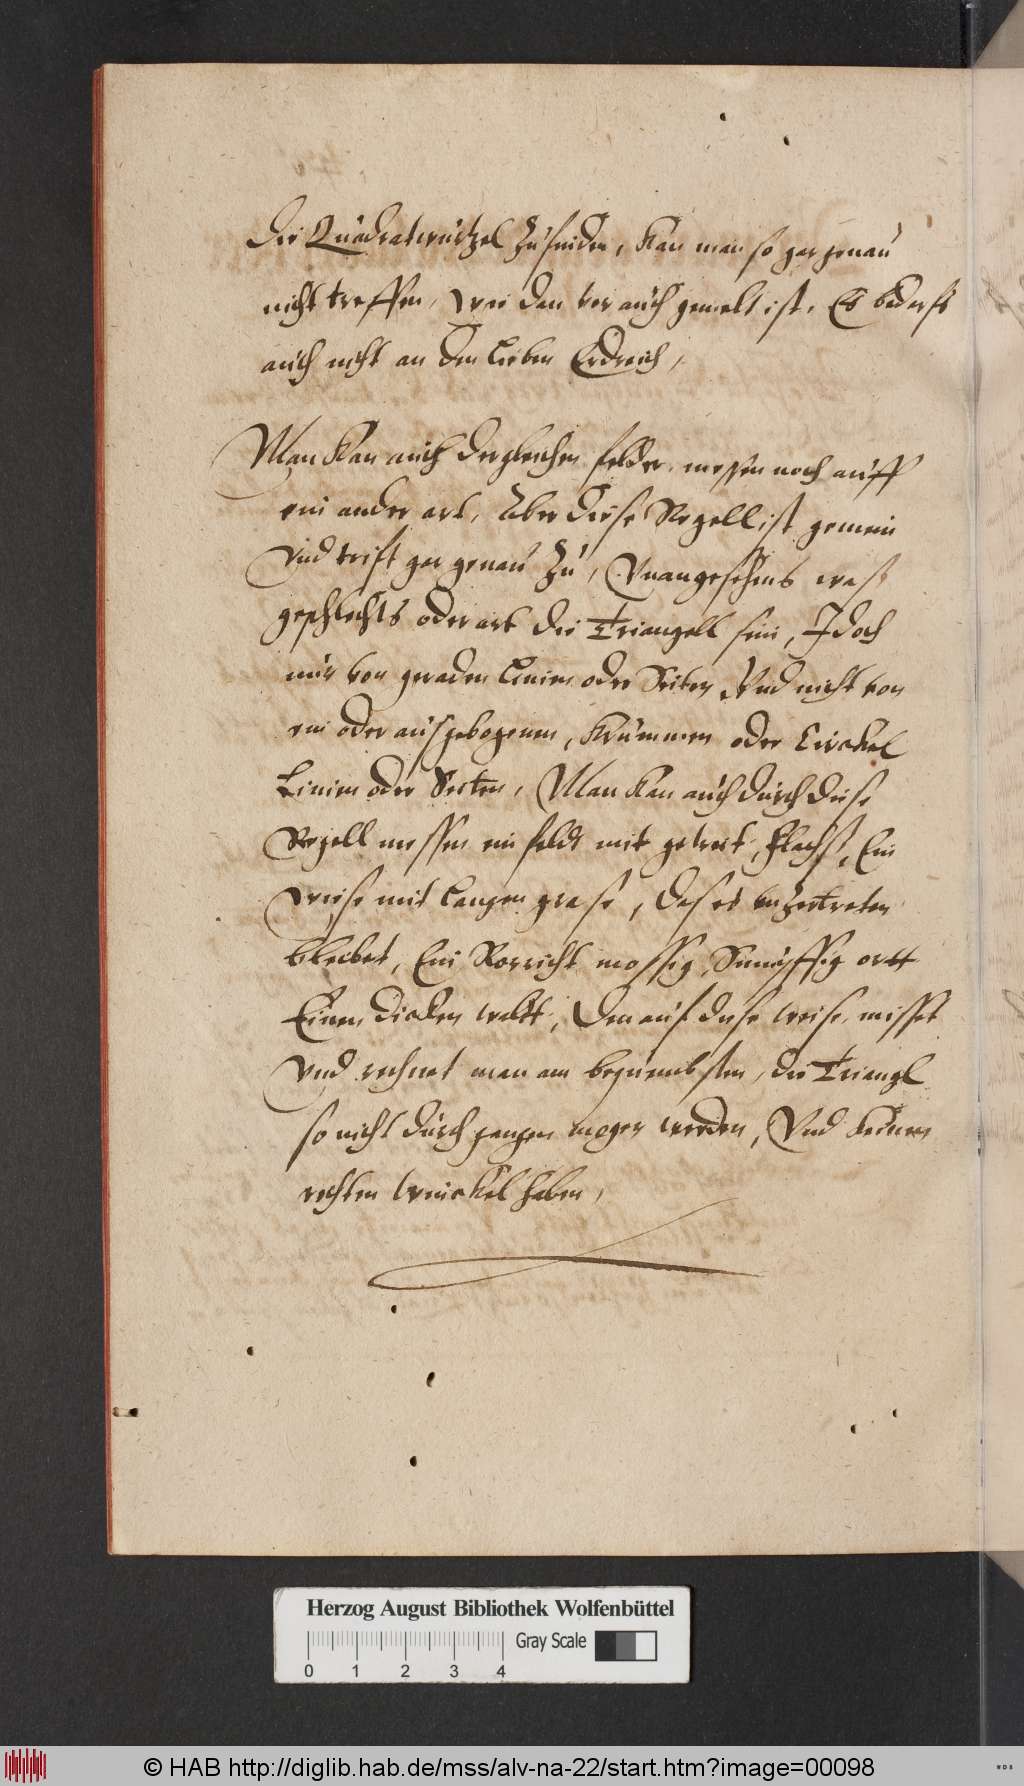 Die Quadratwurtzel zu finden, Kan man so gar genau
nicht treffen, wie dan vor auch gemelt ist. Es bedarfs
auch nicht an den lieben Erdreich,
Man Kan auch dergleichen felder messen noch auff
ein ander art, Aber diese Regell ist gemein
Vnd trift gar genau zu, Vnangesehens was
geschlechts oder art die Triangell sein, Jdoch
nur von geraden Linien oder Seiten, Vnd nicht von
ein oder ausgebogenen, Krummen oder Circkel
Linien oder Seiten, Man Kan auch durch diese
Regell messen ein feldt mit getreit, flachs, Ein
wiese mit langen grase, das es vnzertreten
bleibet, Ein Rorricht mossig, Sumpffig ortt
Einen dicken waltt, Den auf diese weise misset
Vnd rechnet man am bequembsten, die Triangl
so nicht durch gangen mogen werden, Vnd keinen
rechten winckel haben,
Herzog August Bibliothek Wolfenbüttel
Gray Scale
0 1 2 3 4
© HAB http://diglib.hab.de/mss/alv-na-22/start.htm?image=00098